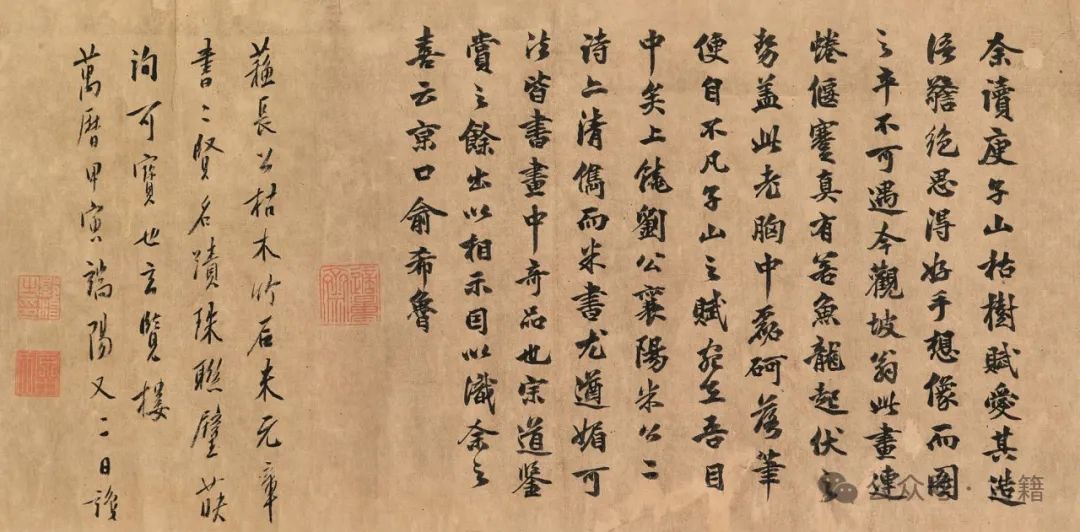 余讀庾子山枯樹賦愛其造
語警絕思得好手想像而圖
之卒不可遇今觀坡翁此畫連
蜷偃蹇真有若魚龍起伏之
勢蓋此老胸中磊砢落筆
便自不凡子山之賦宛在吾目
中矣上饒劉公襄陽米公二
詩亦清儁而米書尤遒媚可
法皆書畫中奇品也宗道鑒
賞之餘出以相示因以識余之
喜云京口俞希魯
蘇長公枯木竹石米元章
書二賢名蹟珠聯璧映
洵可寶也玄覽樓
萬曆甲寅端陽又二日識
公众号·籍